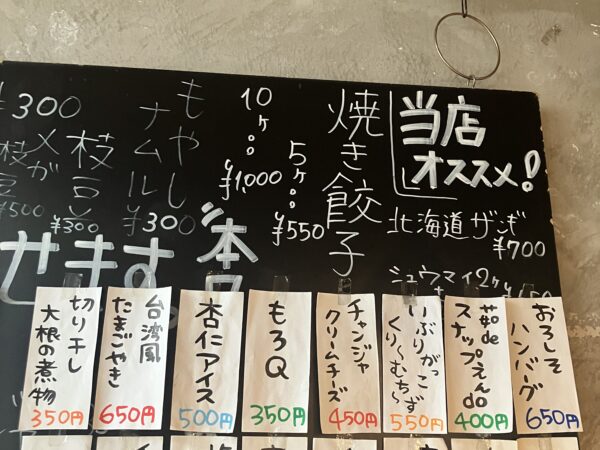 当店
オススメ!
北海道 ザンギ
¥700
シュウマイ2ヶ
焼き餃子
5ヶ…
¥550
10ヶ…
¥1,000
もやし
ナムル
¥300
枝豆
¥300
¥300
¥500
せます。
おろしそ
ハンバーグ
650円
茹de
スナップえんdo
400円
いぶりがっこ
くり〜むち〜ず
550円
チャンジャ
クリームチーズ
450円
もろQ
350円
杏仁アイス
500円
台湾風
たまごやき
650円
切り干し
大根の煮物
350円